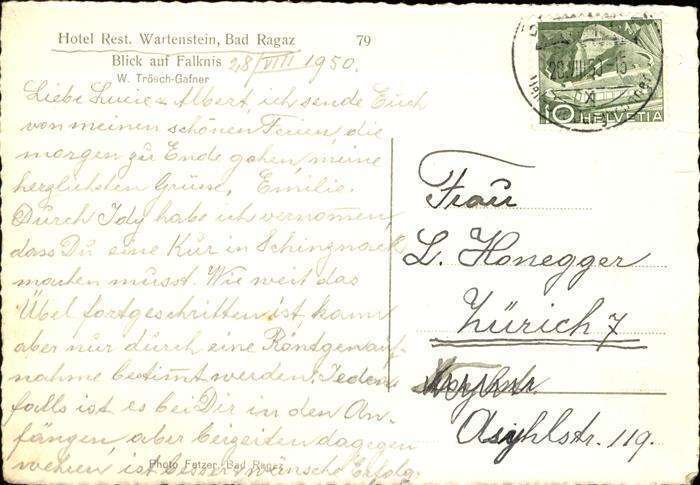 Hotel Rest. Wartenstein, Bad Ragaz
79
Blick auf Falknis
28/VIII 1950.
W. Trösch-Gafner
Liebe Albert, ich sende Euch
von meinen schönen Ferien, die
morgen zu Ende gehen, meine
herzlichsten Grüsse, Emilie.
Durch Idy habe ich vernommen,
dass Du eine Kur in Schinznach
machen musst. Wie weit das
Übel fortgeschritten ist, kann
aber nur durch eine Röntgenauf-
nahme bestimt werden, Jeden-
falls ist es bei Dir in den An-
fängen, aber beizeiten dagegen
wehren, ist besser, wünsche Erfolg.
Photo Fetzer, Bad Ragaz
10 HELVETIA
Frau
L. Honegger
Zürich 7
Asylstr. 119.